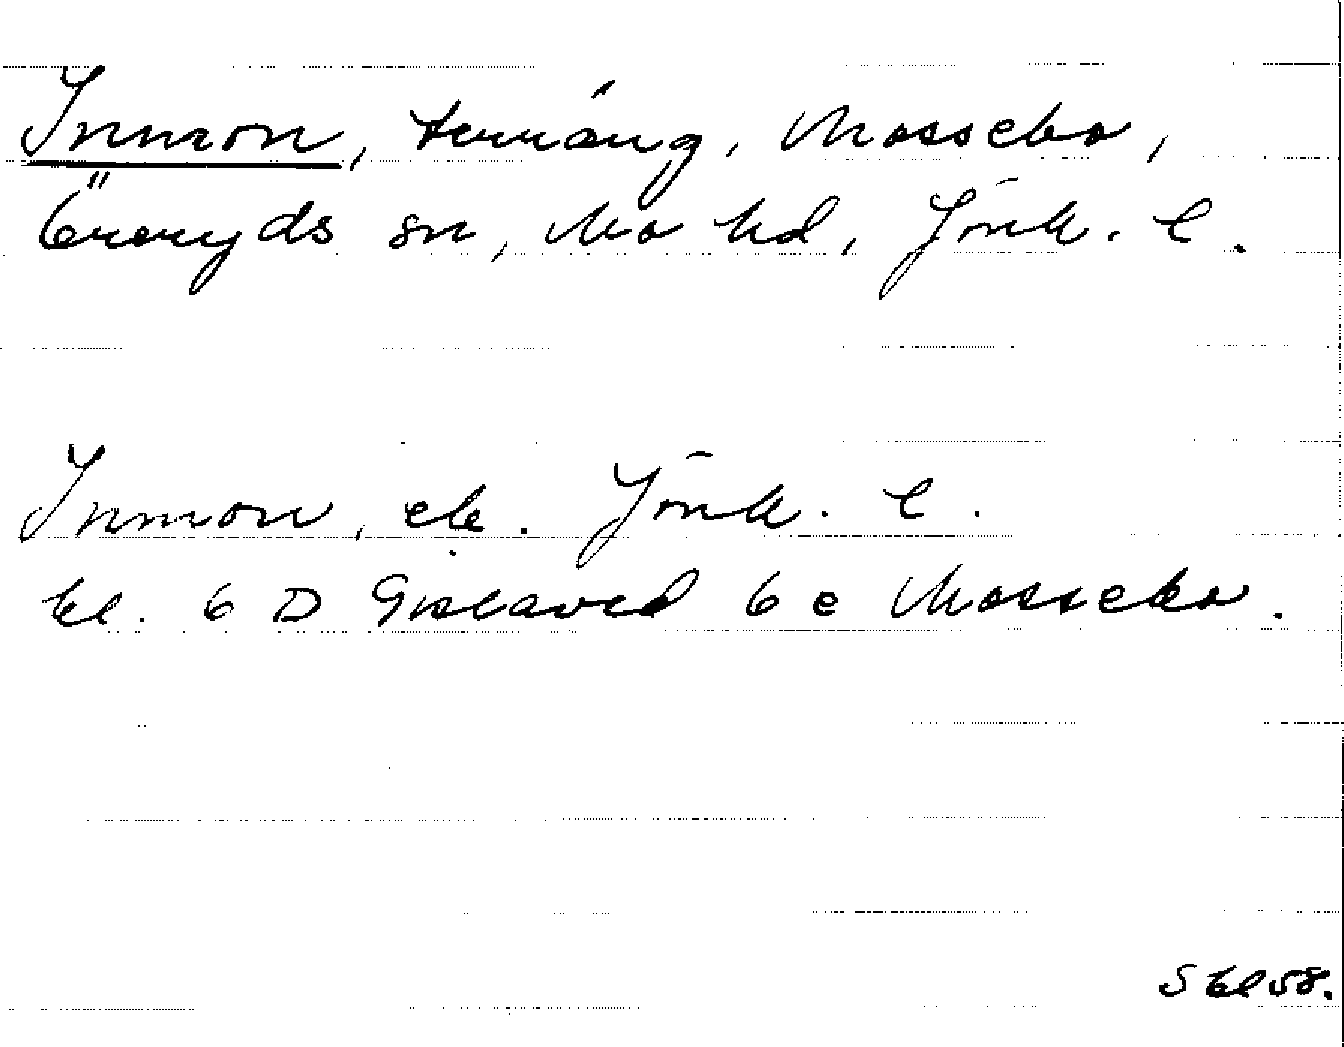 Inmon, terräng, Mossebo,
Öreryds sn, Mo hd, Jönk. l.
Inmon, ek. Jönk. l.
bl. 6 D Gislaved 6 e Mossebo.
S bl 58.